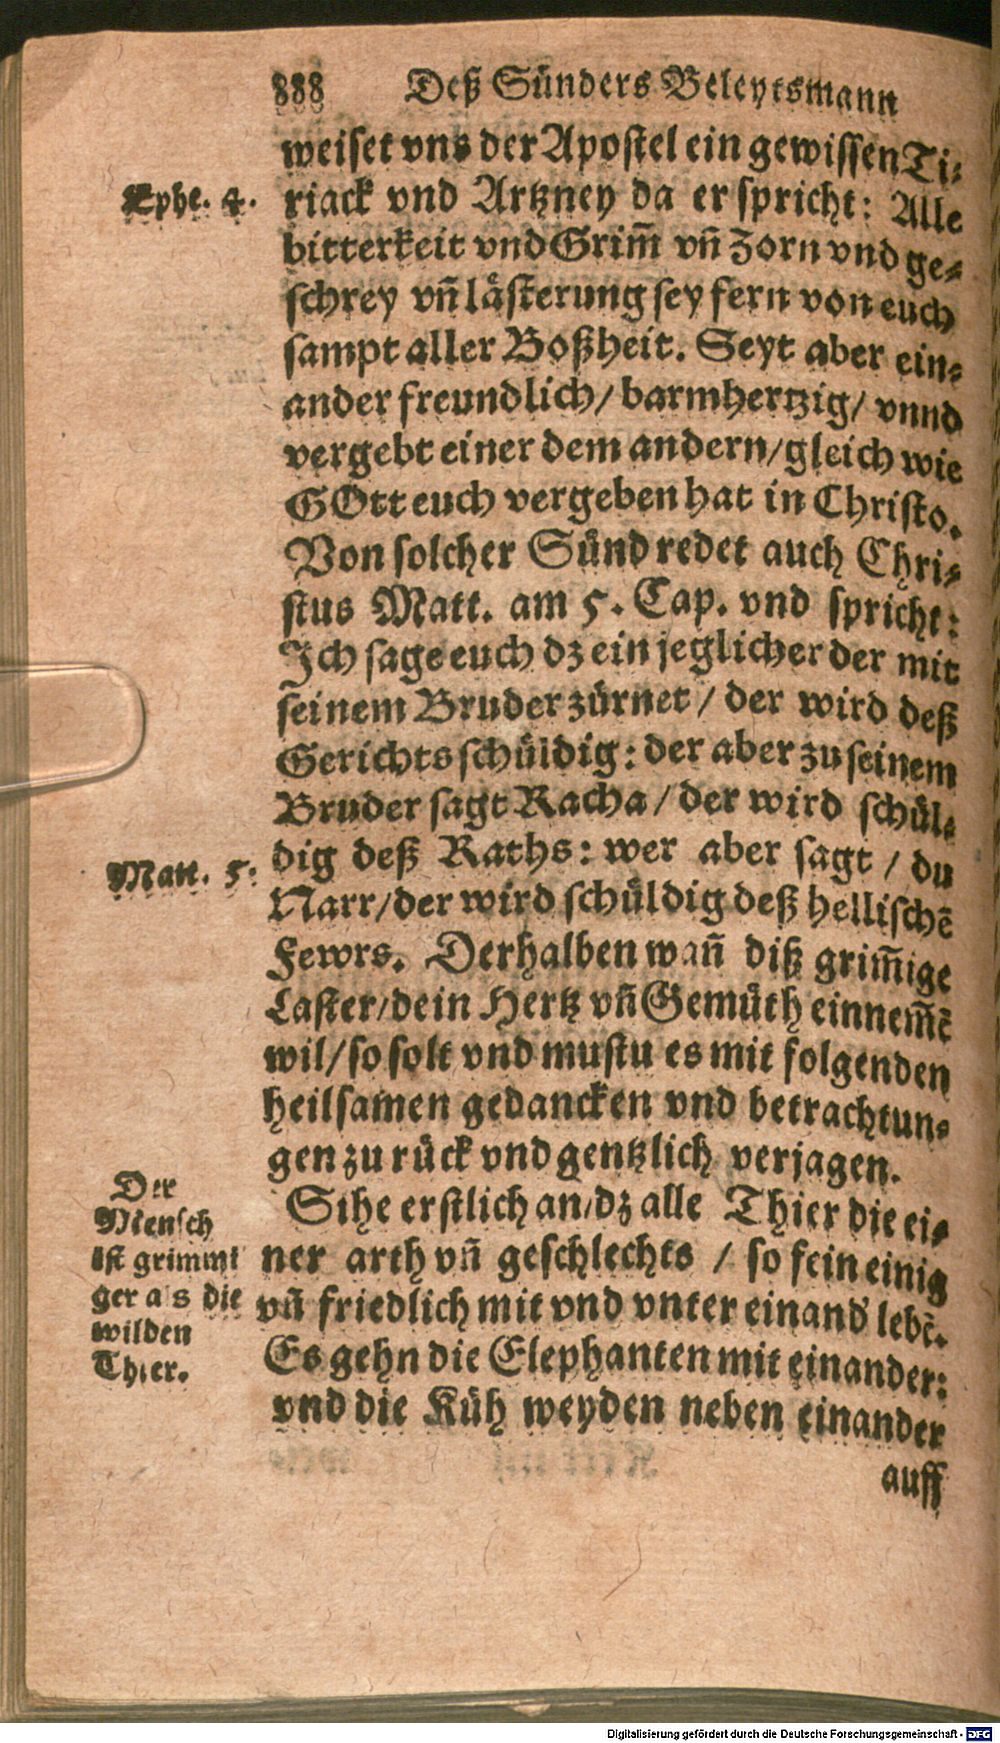 888 Deß Sünders Beleytsmann
weiset vns der Apostel ein gewissen Ti⸗
Ephe. 4. riack vnd Artzney da er spricht: Alle
bitterkeit vnd Grim̃ vñ Zorn vnd ge⸗
schrey vñ lästerung sey fern von euch
sampt aller Boßheit. Seyt aber ein⸗
ander freundlich/ barmhertzig/ vnnd
vergebt einer dem andern/gleich wie
GOtt euch vergeben hat in Christo.
Von solcher Sünd redet auch Chri⸗
stus Matt. am 5. Cap. vnd spricht:
Ich sage euch dz ein jeglicher der mit
seinem Bruder zürnet / der wird deß
Gerichts schüldig: der aber zu seinem
Bruder sagt Racha / der wird schül⸗
Matt. 5: dig deß Raths: wer aber sagt / du
Narr/der wird schüldig deß hellischẽ
Fewrs. Derhalben wañ diß grim̃ige
Laster/dein Hertz vñ Gemüth einnem̃ẽ
wil/so solt vnd mustu es mit folgenden
heilsamen gedancken vnd betrachtun⸗
gen zu rück vnd gentzlich verjagen.
Der
Mensch
ist grimmi
ger als die
wilden
Thier.
Sihe erstlich an/dz alle Thier die ei⸗
ner arth vñ geschlechts / so fein einig
vñ friedlich mit vnd vnter einand' lebẽ.
Es gehn die Elephanten mit einander:
vnd die Küh weyden neben einander
auff
Digitalisierung gefördert durch die Deutsche Forschungsgemeinschaft - DFG